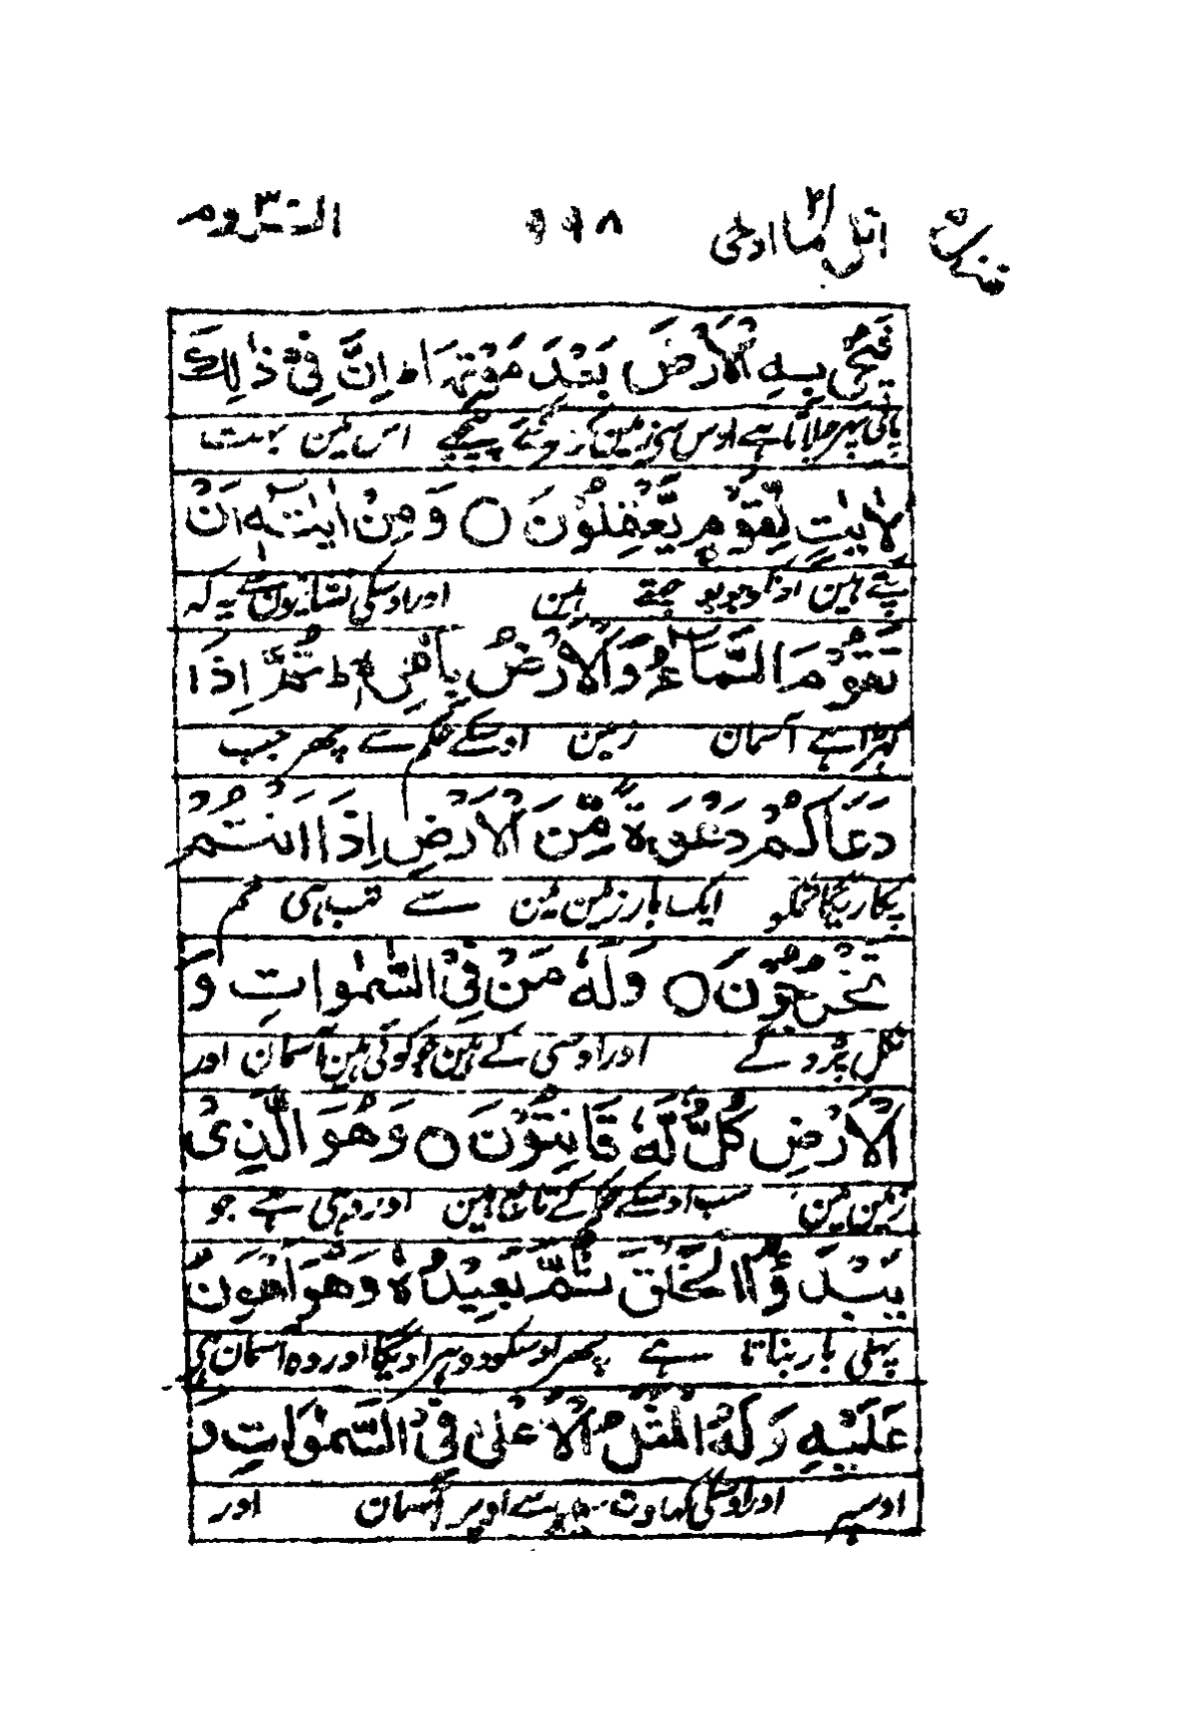 اتل ما اوحی ٢١ ٩٩٨ الروم ٣٠
فَيُحْيٖ بِهِ الْاَرْضَ بَعْدَ مَوْتِهَا ط اِنَّ فِيْ ذٰلِكَ
پانی پھر جلاتا ہے اوس سی زمین کو مر گئے پیچھے اس مین بہت
لَاٰيٰتٍ لِّقَوْمٍ يَّعْقِلُوْنَ ○ وَمِنْ اٰيٰتِهٖٓ اَنْ
پتے ہین اونکو جو بوجھتے ہین اور اوسکی نشانیون سے یہ کہ
تَقُوْمَ السَّمَآءُ وَالْاَرْضُ بِاَمْرِهٖ ط ثُمَّ اِذَا
کھڑا ہے آسمان زمین اوسکے حکم سے پھر جب
دَعَاكُمْ دَعْوَةً مِّنَ الْاَرْضِ اِذَا اَنْتُمْ
پکاریگا تمکو ایک بار زمین مین سے تب ہی تم
تَخْرُجُوْنَ ○ وَلَهٗ مَنْ فِي السَّمٰوَاتِ وَ
نکل پڑو گے اور اوسی کے ہین جو کوئی ہین آسمان اور
الْاَرْضِ كُلٌّ لَّهٗ قَانِتُوْنَ ○ وَهُوَ الَّذِيْ
زمین مین سب اوسکے حکم کے تابع ہین اور وہی ہے جو
يَبْدَؤُا الْخَلْقَ ثُمَّ يُعِيْدُهٗ وَهُوَ اَهْوَنُ
پہلی بار بناتا ہے پھر اوسکو دوہراویگا اور وہ آسان ہی
عَلَيْهِ وَلَهُ الْمَثَلُ الْاَعْلٰى فِي السَّمٰوَاتِ وَ
اوسپر اور اوسکی کہاوت سب سے اوپر آسمان اور